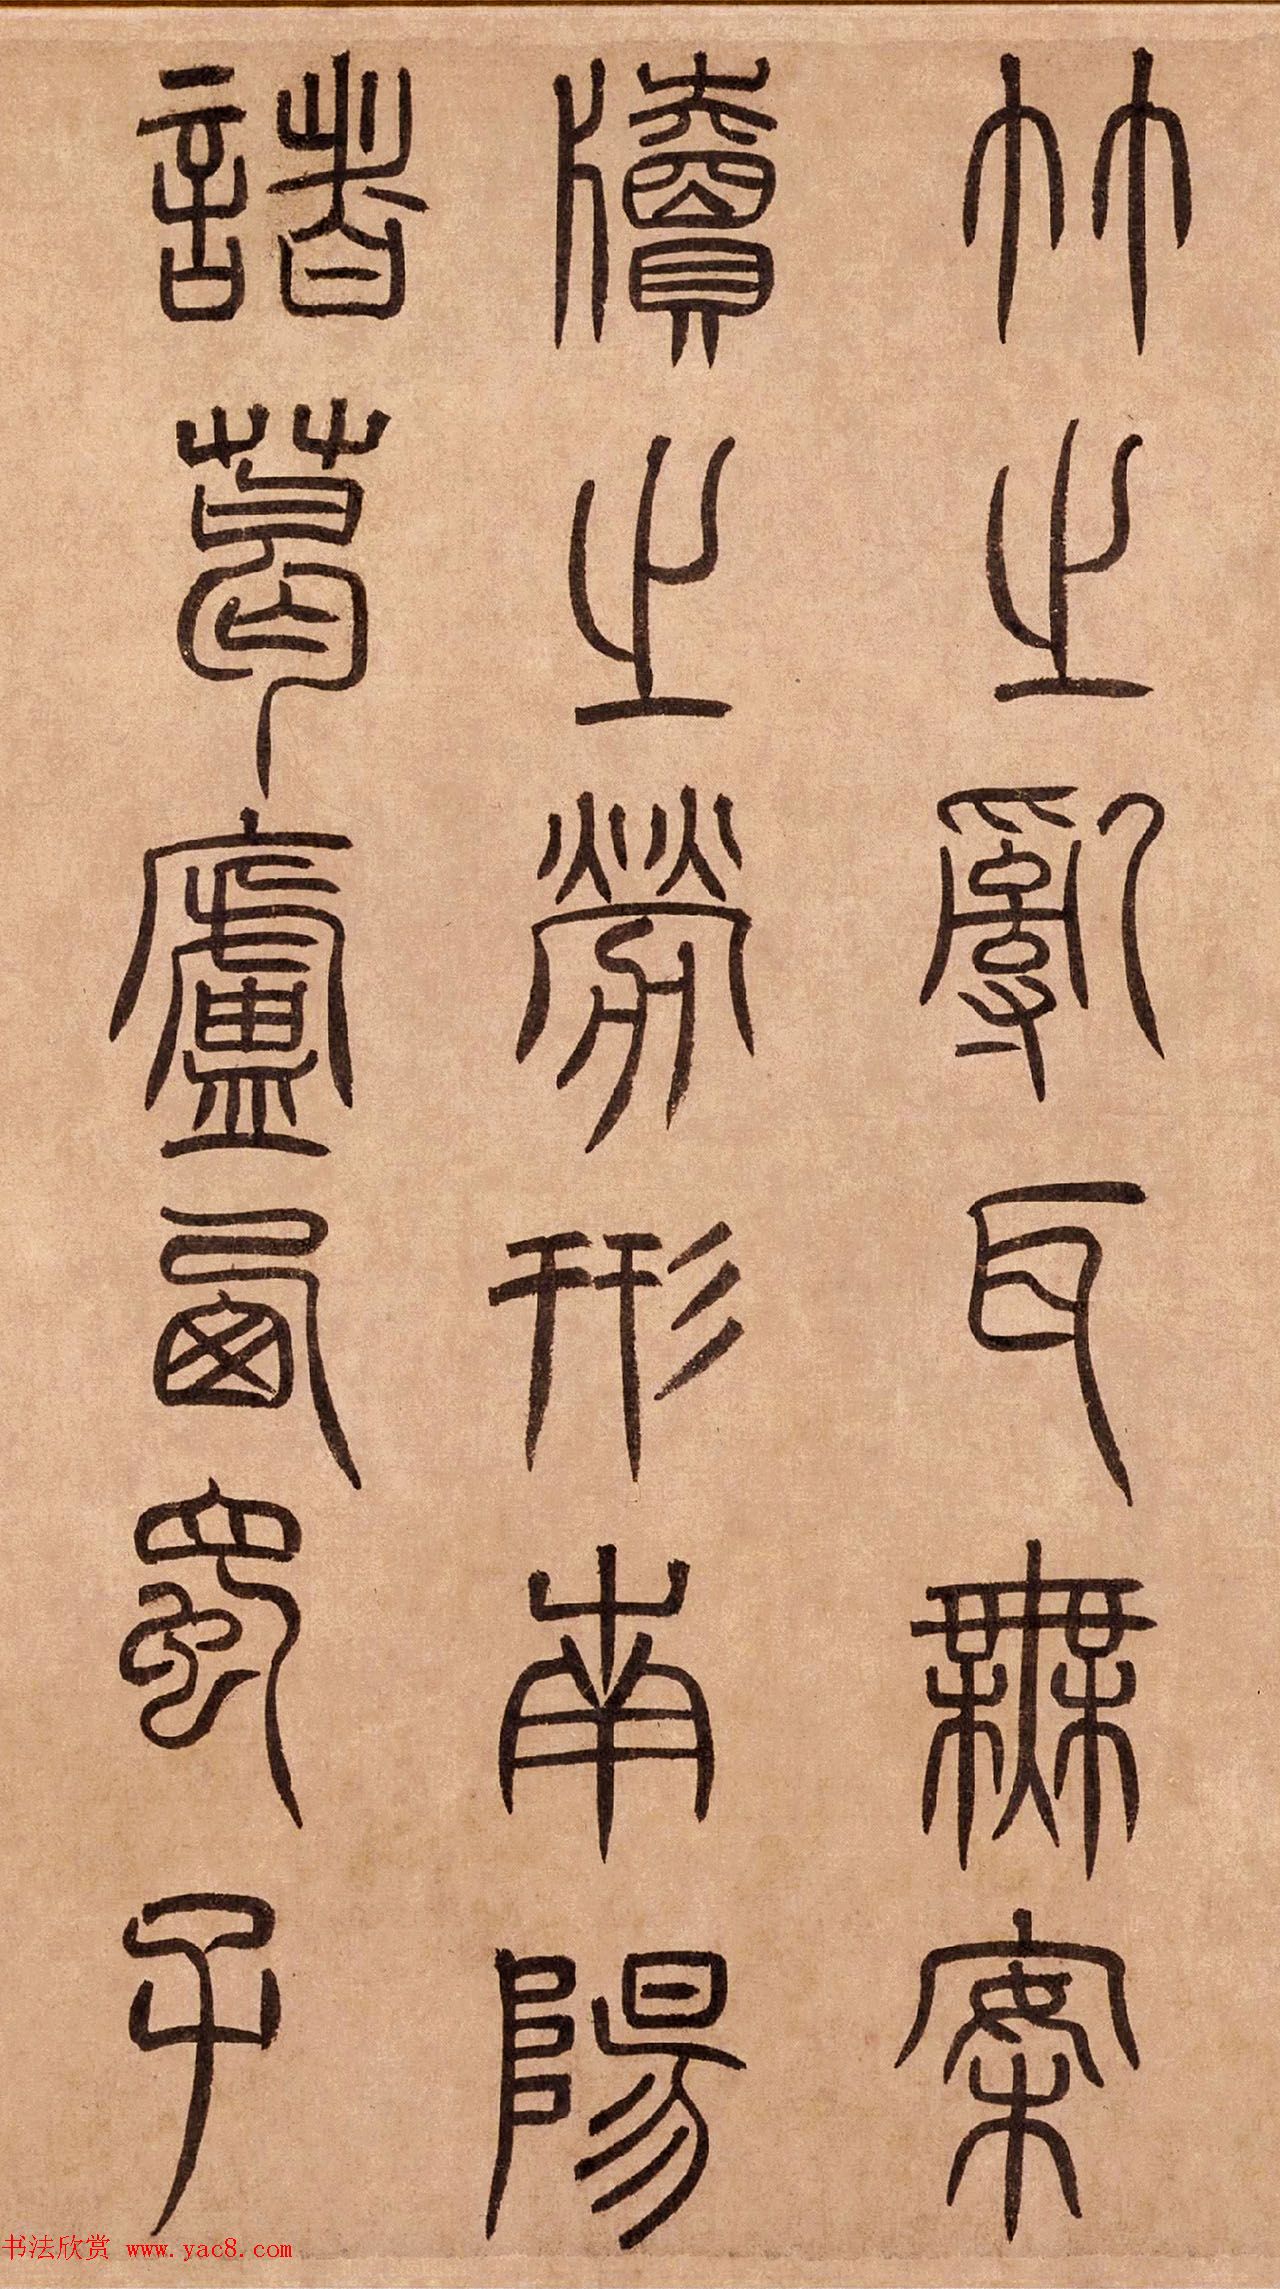 竹之亂耳無案
牘之勞形南陽
諸葛廬西蜀子
书法欣赏 www.yac8.com